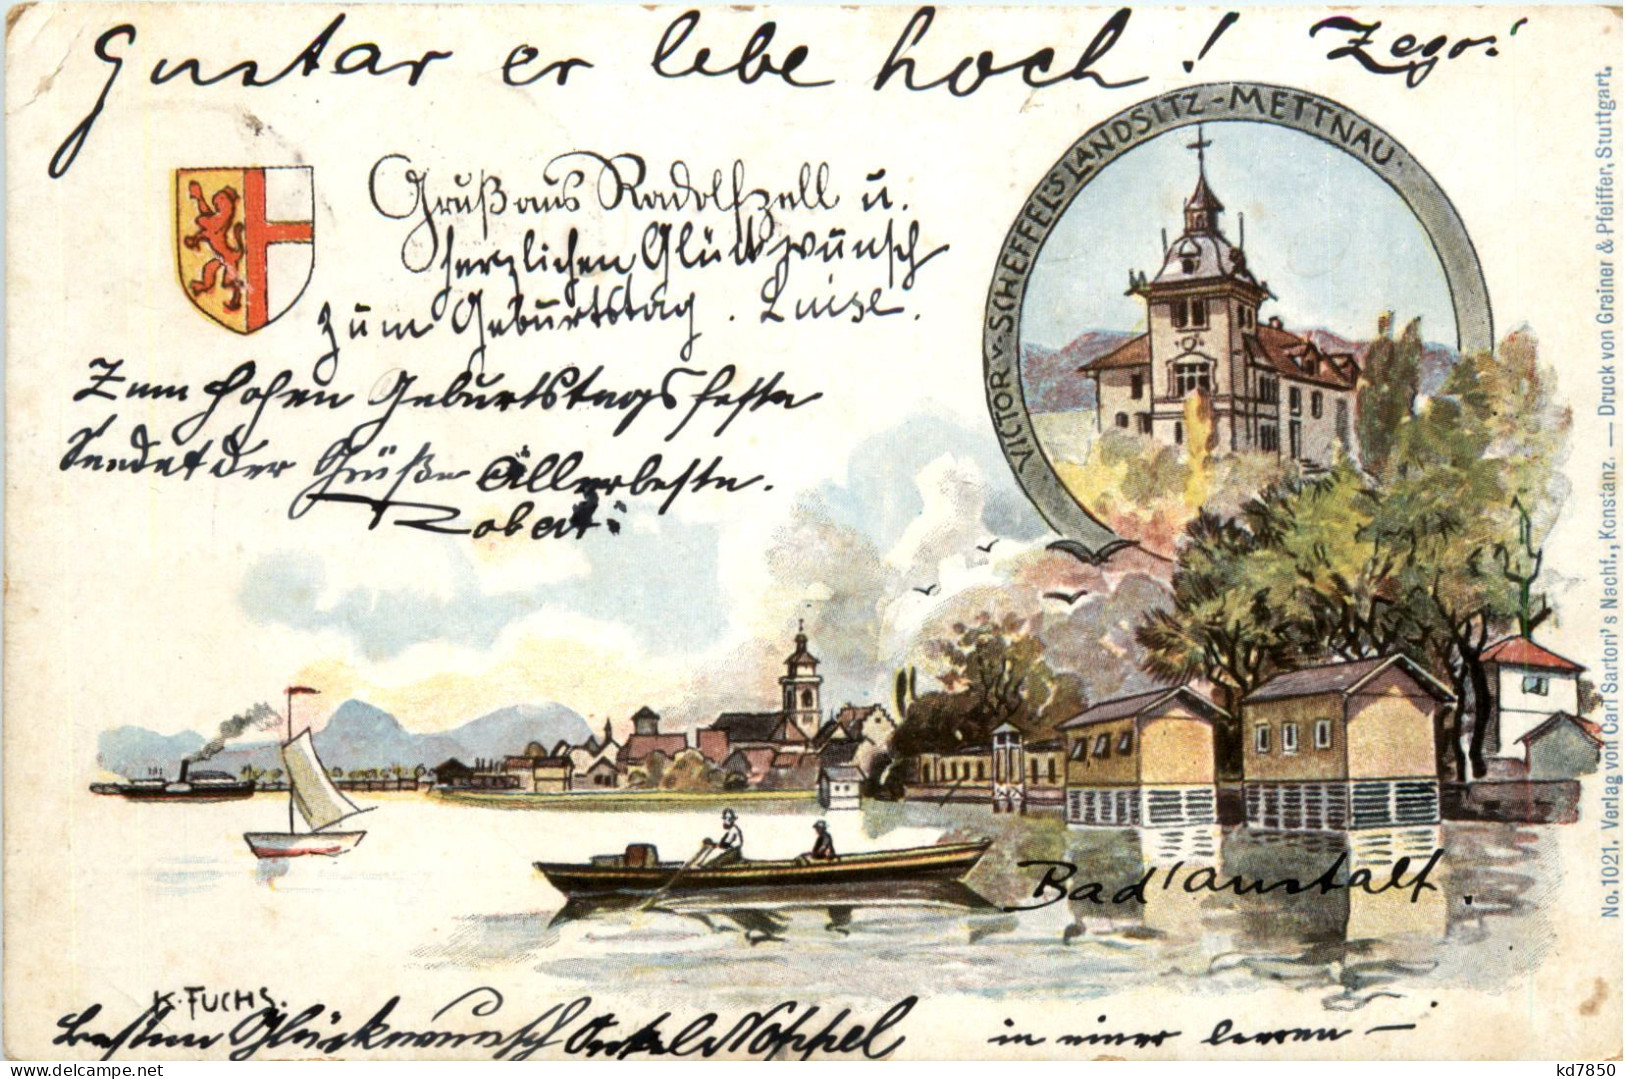 Gustav er lebe hoch! Zego!
VICTOR v. SCHEFFEL'S LANDSITZ - METTNAU.
Gruß aus Radolfzell u.
herzlichen Glückwünsch
zum Geburtstag. Luise.
Zum hohen Geburtstagsfeste
Sendet der Grüße Allerbeste.
Robert.
Bad'anstalt.
K. FUCHS.
besten Glückwunsch Onkel Noppel
in einer
No. 1021. Verlag von Carl Sartori's Nachf., Konstanz. — Druck von Greiner & Pfeiffer, Stuttgart.
kd7850